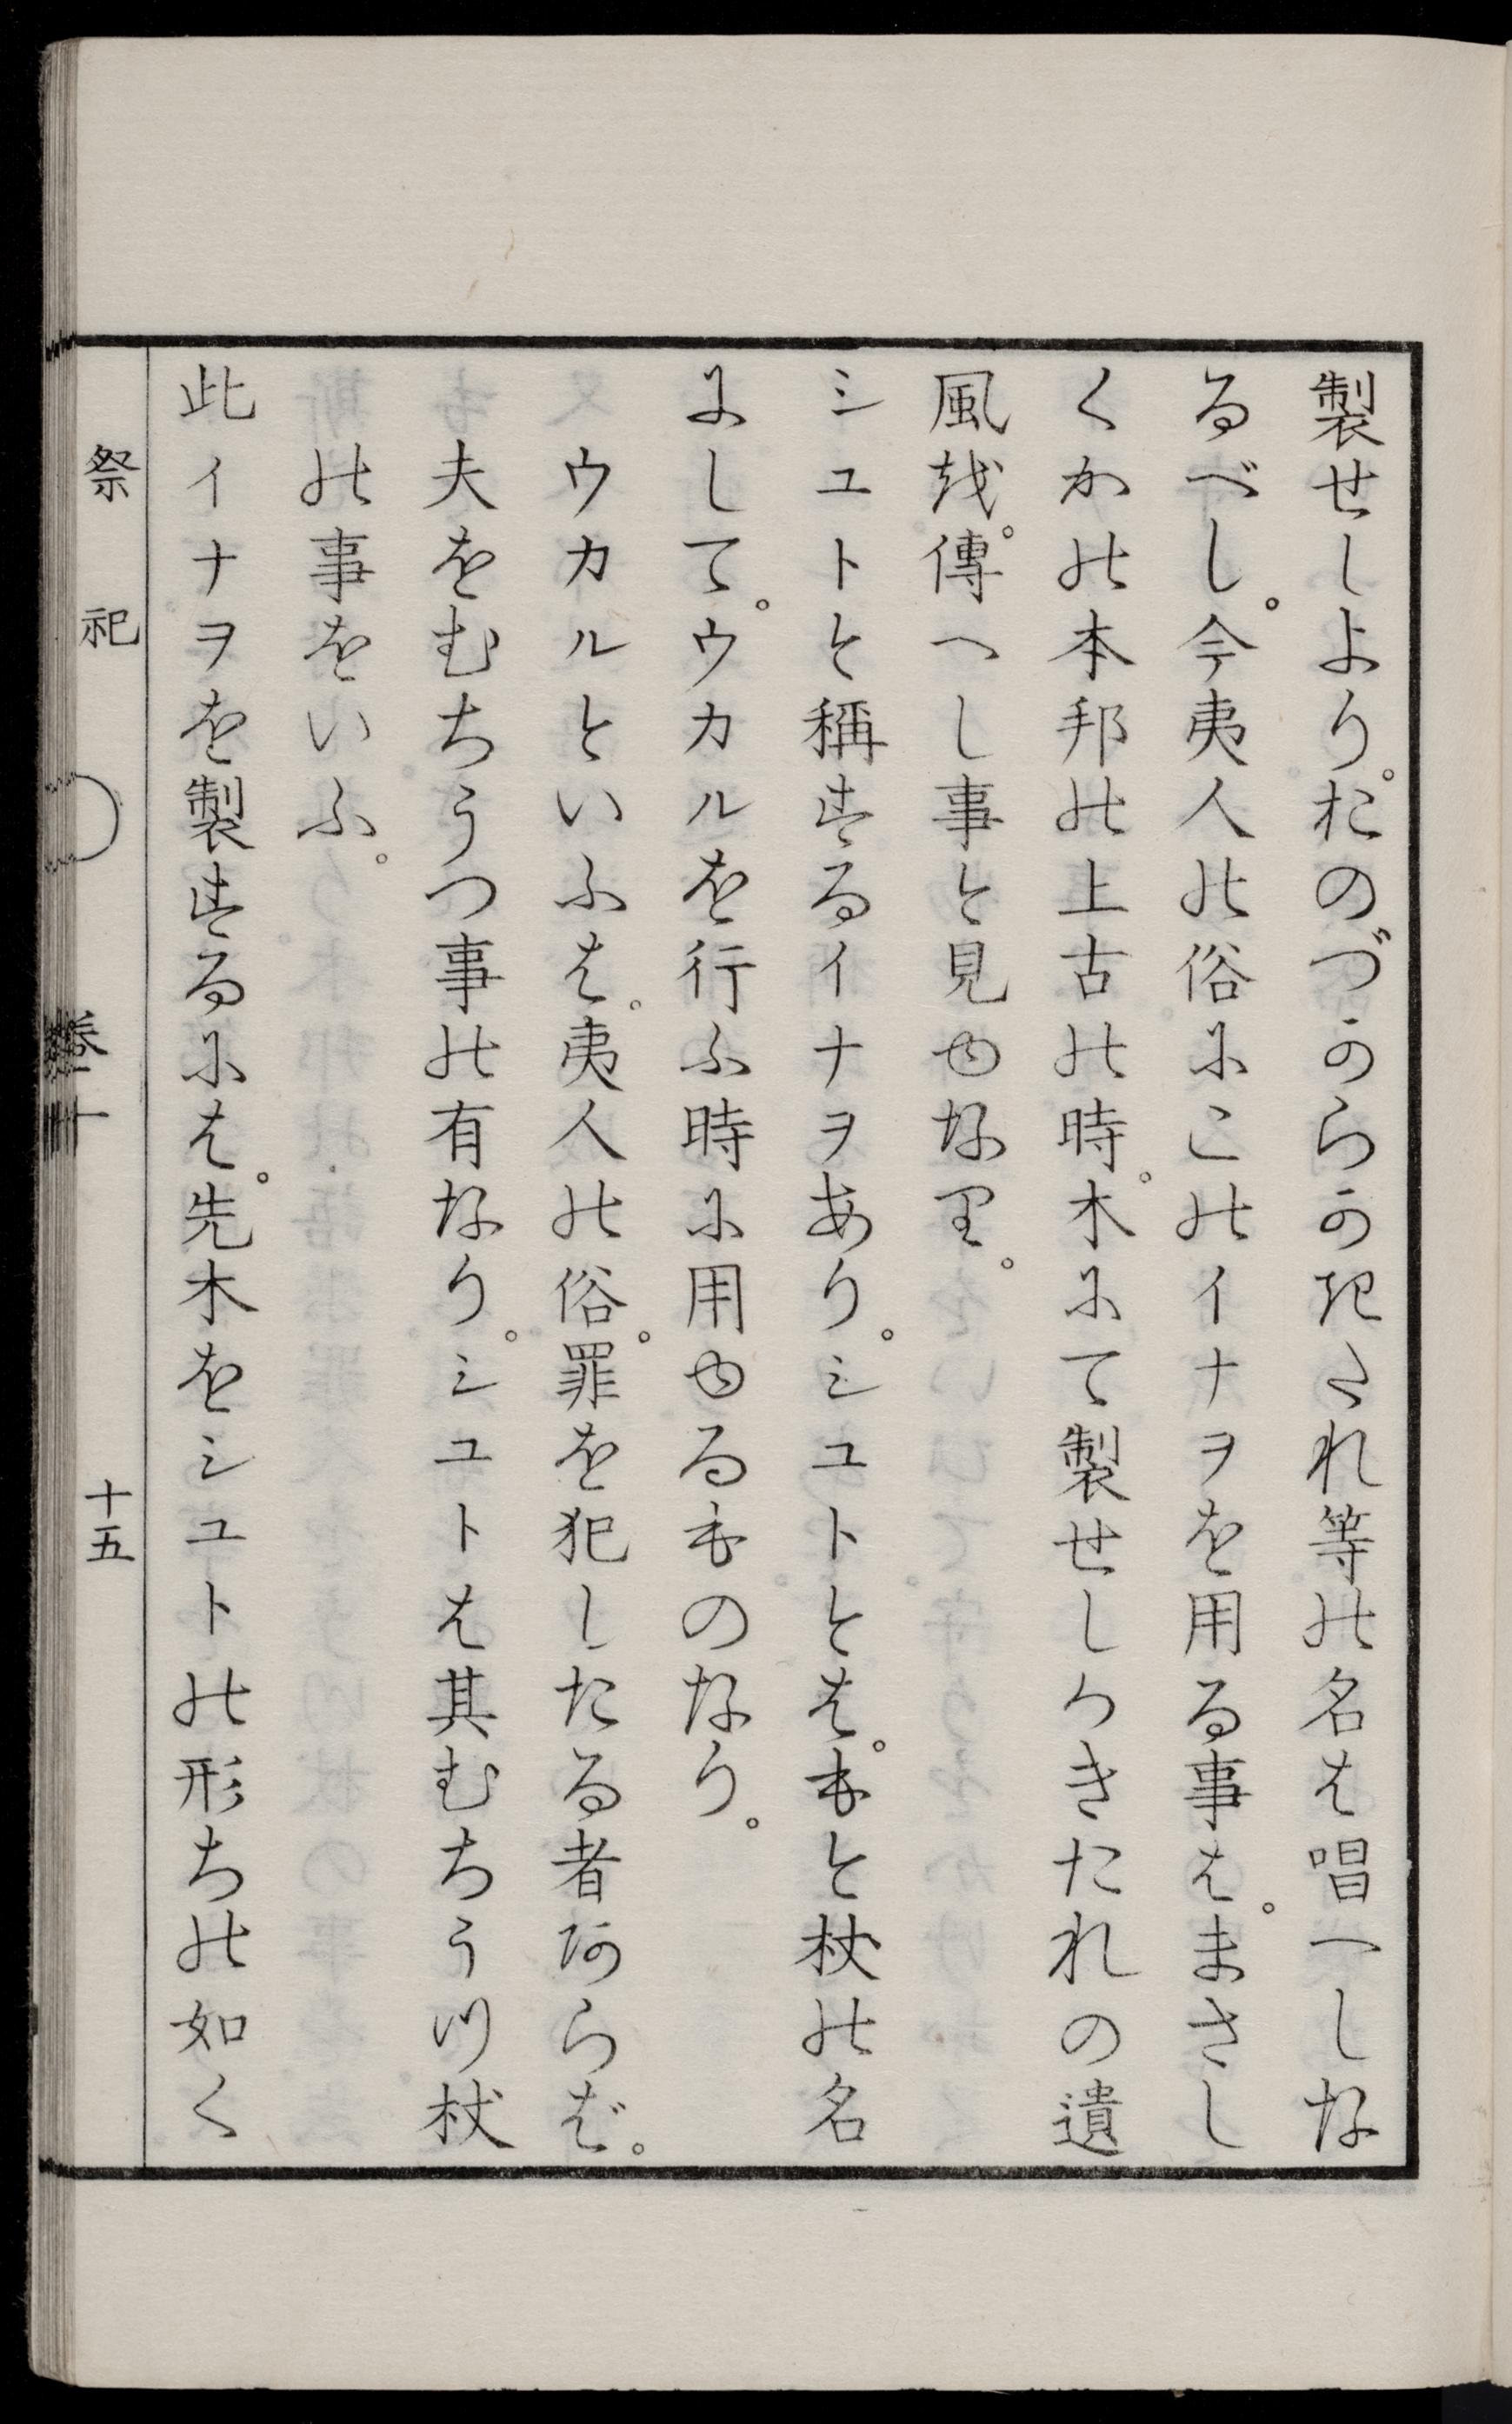 製せしより。おのづからかきたれ等の名は唱へしな
るべし。今夷人の俗にこのイナヲを用る事は。まさし
くかの本邦の上古の時。木にて製せしかきたれの遺
風を。傳へし事と見ゆなり。
シユトと稱するイナヲあり。シユトとは。もと杖の名
にして。ウカルを行ふ時に用ゆるものなり。
ウカルといふは。夷人の俗。罪を犯したる者あらば。
夫をむちうつ事の有なり。シユトは其むちうつ杖
の事をいふ。
此イナヲを製するには。先木をシユトの形ちの如く
祭祀 卷十 十五